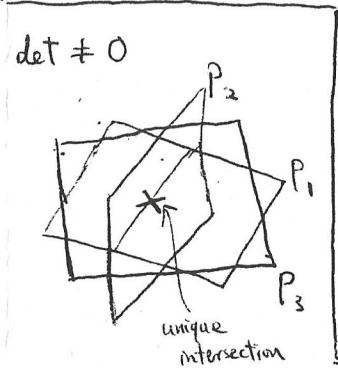 det ≠ 0
P₂
P₁
P₃
unique
intersection